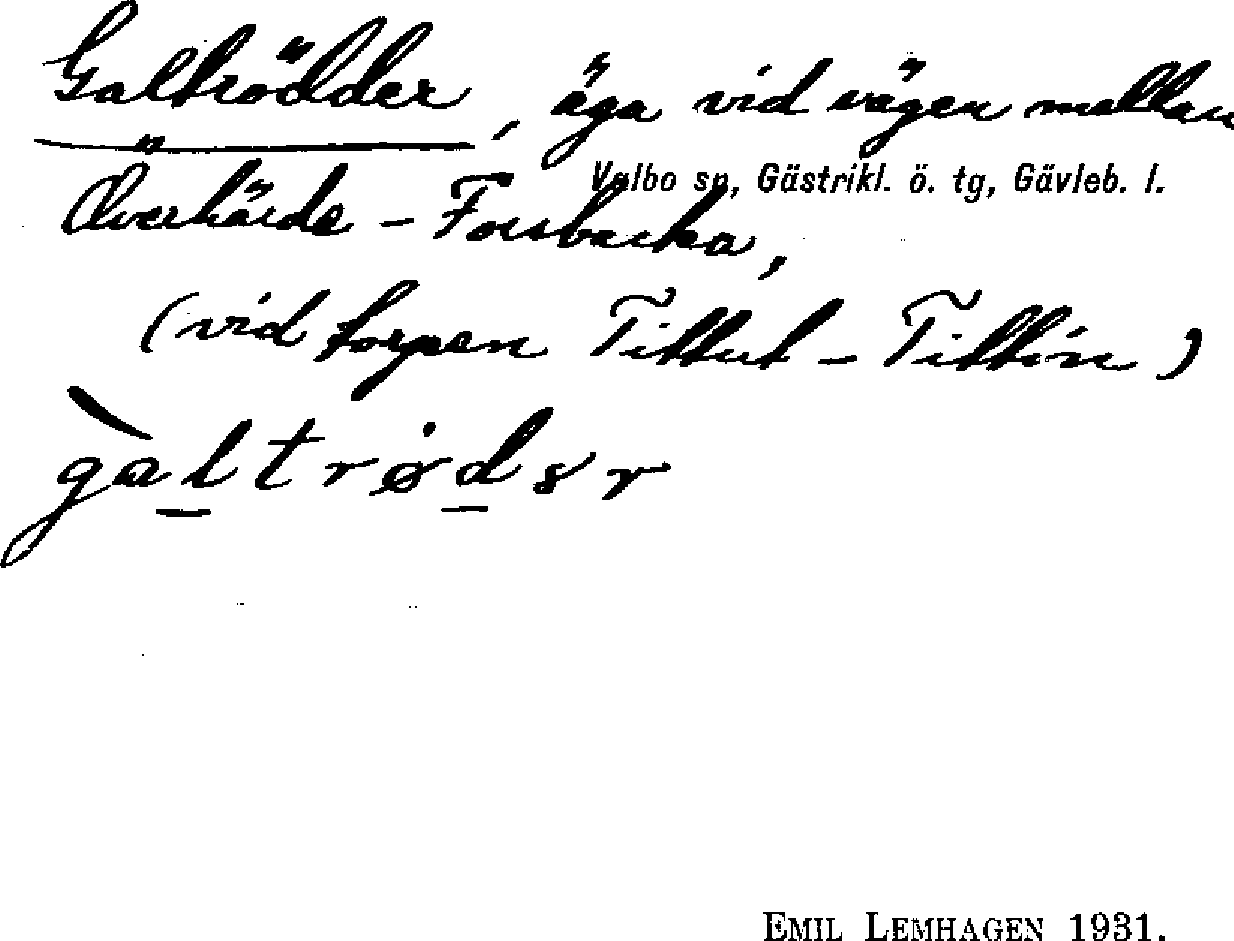 Galtrödder, äga vid vägen mellan
Valbo sn, Gästrikl. ö. tg, Gävleb. l.
Överhärde - Forsbacka,
(vid torpen Tittut - Tittin)
gàltrødər
EMIL LEMHAGEN 1931.